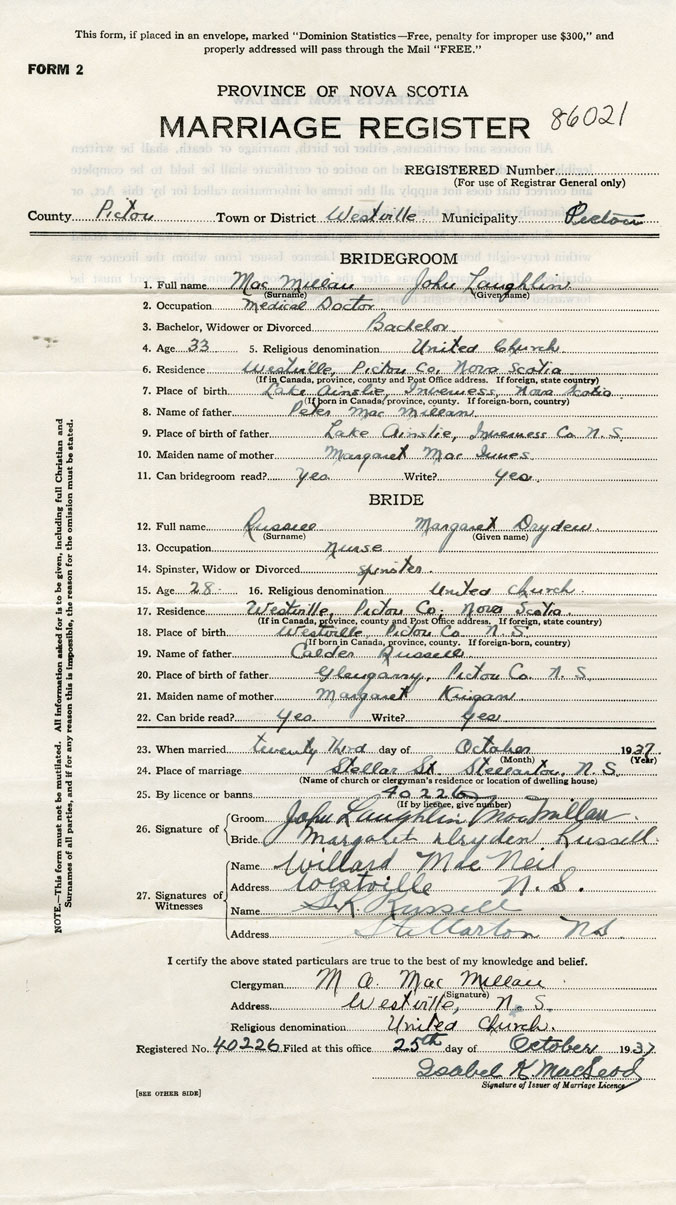 This form, if placed in an envelope, marked "Dominion Statistics—Free, penalty for improper use $300," and
properly addressed will pass through the Mail "FREE."
FORM 2
PROVINCE OF NOVA SCOTIA
MARRIAGE REGISTER 86021
REGISTERED Number
(For use of Registrar General only)
County Pictou Town or District Westville Municipality Pictou
BRIDEGROOM
1. Full name Mac Millan John Laughlin
(Surname) (Given name)
2. Occupation Medical Doctor
3. Bachelor, Widower or Divorced Bachelor
4. Age 33 5. Religious denomination United Church
6. Residence Westville, Pictou Co, Nova Scotia
(If in Canada, province, county and Post Office address. If foreign, state country)
7. Place of birth Lake Ainslie, Inverness, Nova Scotia
(If born in Canada, province, county. If foreign-born, country)
8. Name of father Peter Mac Millan
9. Place of birth of father Lake Ainslie, Inverness Co N.S.
10. Maiden name of mother Margaret Mac Innes
11. Can bridegroom read? Yes Write? Yes
BRIDE
12. Full name Russell Margaret Dryden
(Surname) (Given name)
13. Occupation Nurse
14. Spinster, Widow or Divorced spinster
15. Age 28 16. Religious denomination United church
17. Residence Westville, Pictou Co, Nova Scotia
(If in Canada, province, county and Post Office address. If foreign, state country)
18. Place of birth Westville, Pictou Co N. S.
(If born in Canada, province, county. If foreign-born, country)
19. Name of father Calder Russell
20. Place of birth of father Glengarry, Pictou Co N. S.
21. Maiden name of mother Margaret
22. Can bride read? Yes Write? Yes
23. When married twenty Third day of October 1937
(Month) (Year)
24. Place of marriage Stellar St. Stellarton, N.S.
(Name of church or clergyman's residence or location of dwelling house)
25. By licence or banns 40226
(If by licence, give number)
26. Signature of Groom John Laughlin MacMillan
Bride Margaret Dryden Russell
27. Signatures of Witnesses Name Willard MacNeil
Address Westville N. S.
Name S.K. Russell
Address Stellarton NS.
I certify the above stated particulars are true to the best of my knowledge and belief.
Clergyman M A. Mac Millan
(Signature)
Address Westville, N. S.
Religious denomination United Church.
Registered No. 40226 Filed at this office 25th day of October 1937
Isabel K. MacLeod
Signature of Issuer of Marriage Licence
[SEE OTHER SIDE]
NOTE.—This form must not be mutilated. All information asked for is to be given, including full Christian and
Surnames of all parties, and if for any reason this is impossible, the reason for the omission must be stated.